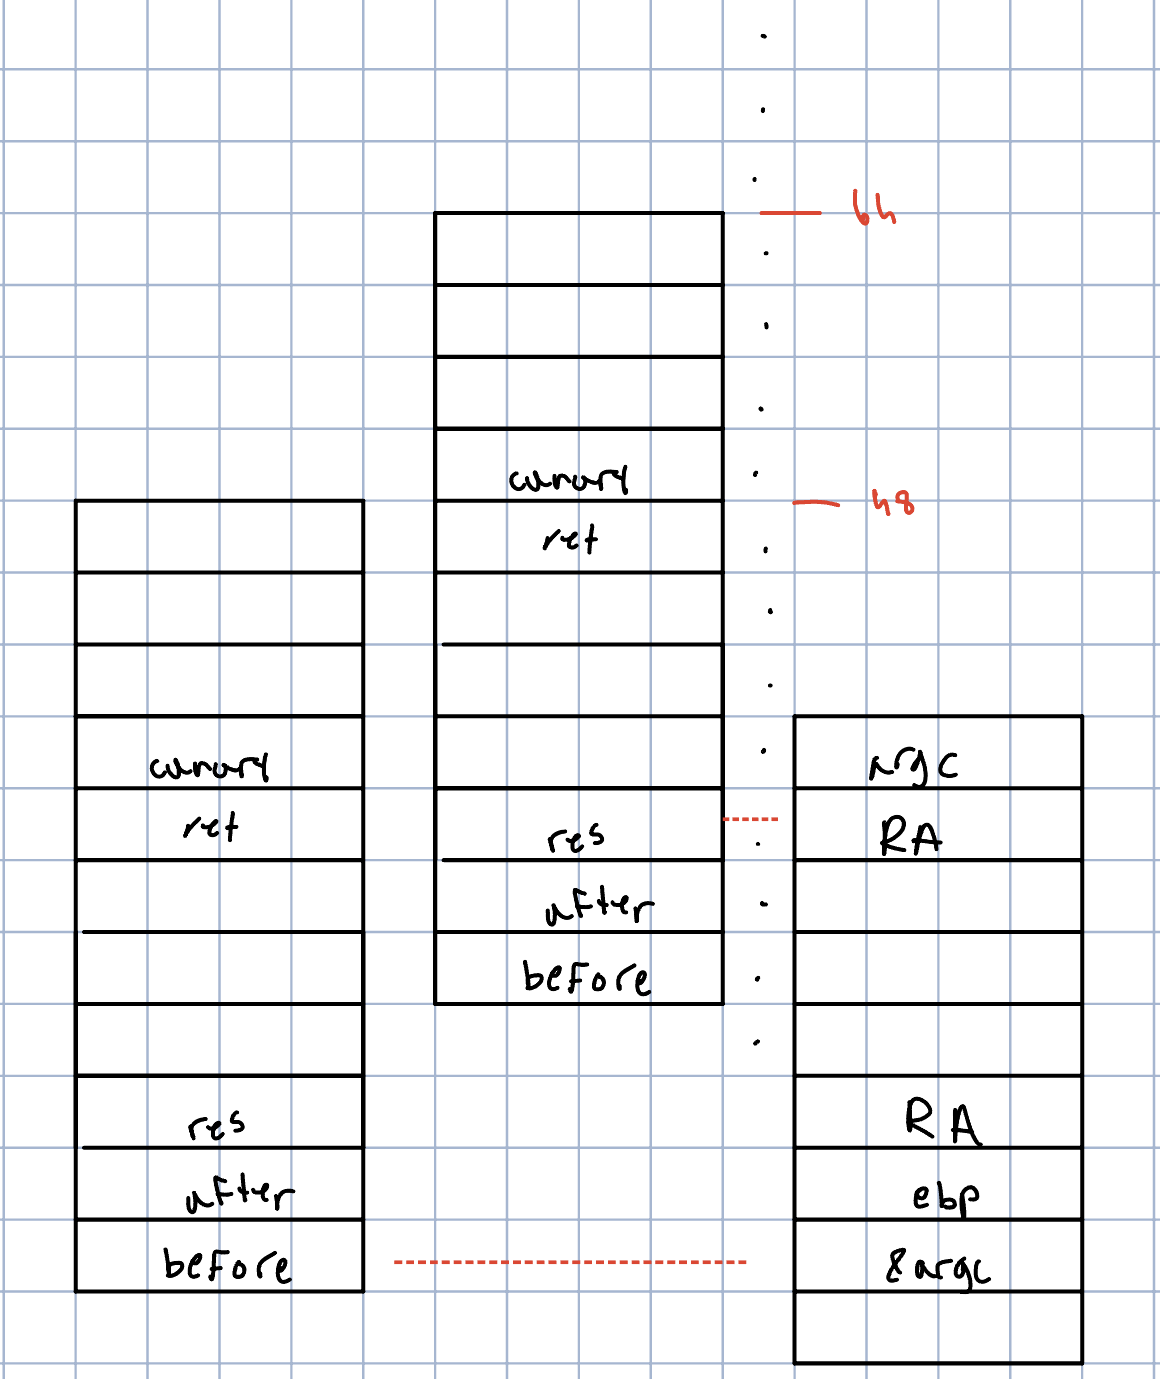 canary
ret
res
after
before
canary
ret
res
after
before
64
48
argc
RA
RA
ebp
&argc